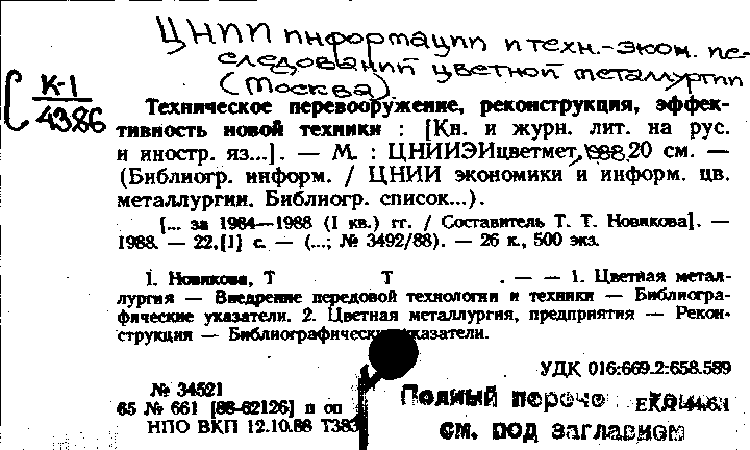 ЦНИИ информации и техн.-эком. ис-
следований цветной металлургии
(Москва)
К-1
4386
Техническое перевооружение, реконструкция, эффек-
тивность новой техники : [Кн. и журн. лит. на рус.
и иностр. яз...]. — М. : ЦНИИЭИцветмет, 1988. 20 см. —
(Библиогр. информ. / ЦНИИ экономики и информ. цв.
металлургии. Библиогр. список...).
[... за 1984—1988 (I кв.) гг. / Составитель Т. Т. Новикова]. —
1988. — 22,[1] с. — (...; № 3492/88). — 26 к., 500 экз.
1. Новикова, Т Т . — — 1. Цветная метал-
лургия — Внедрение передовой технологии и техники — Библиогра-
фические указатели. 2. Цветная металлургия, предприятия — Рекон-
струкция — Библиографические указатели.
УДК 016:669.2:658.589
№ 34521
65 № 661 [88-62126] п оп
НПО ВКП 12.10.88 Т383
Полный
см. под заглавием